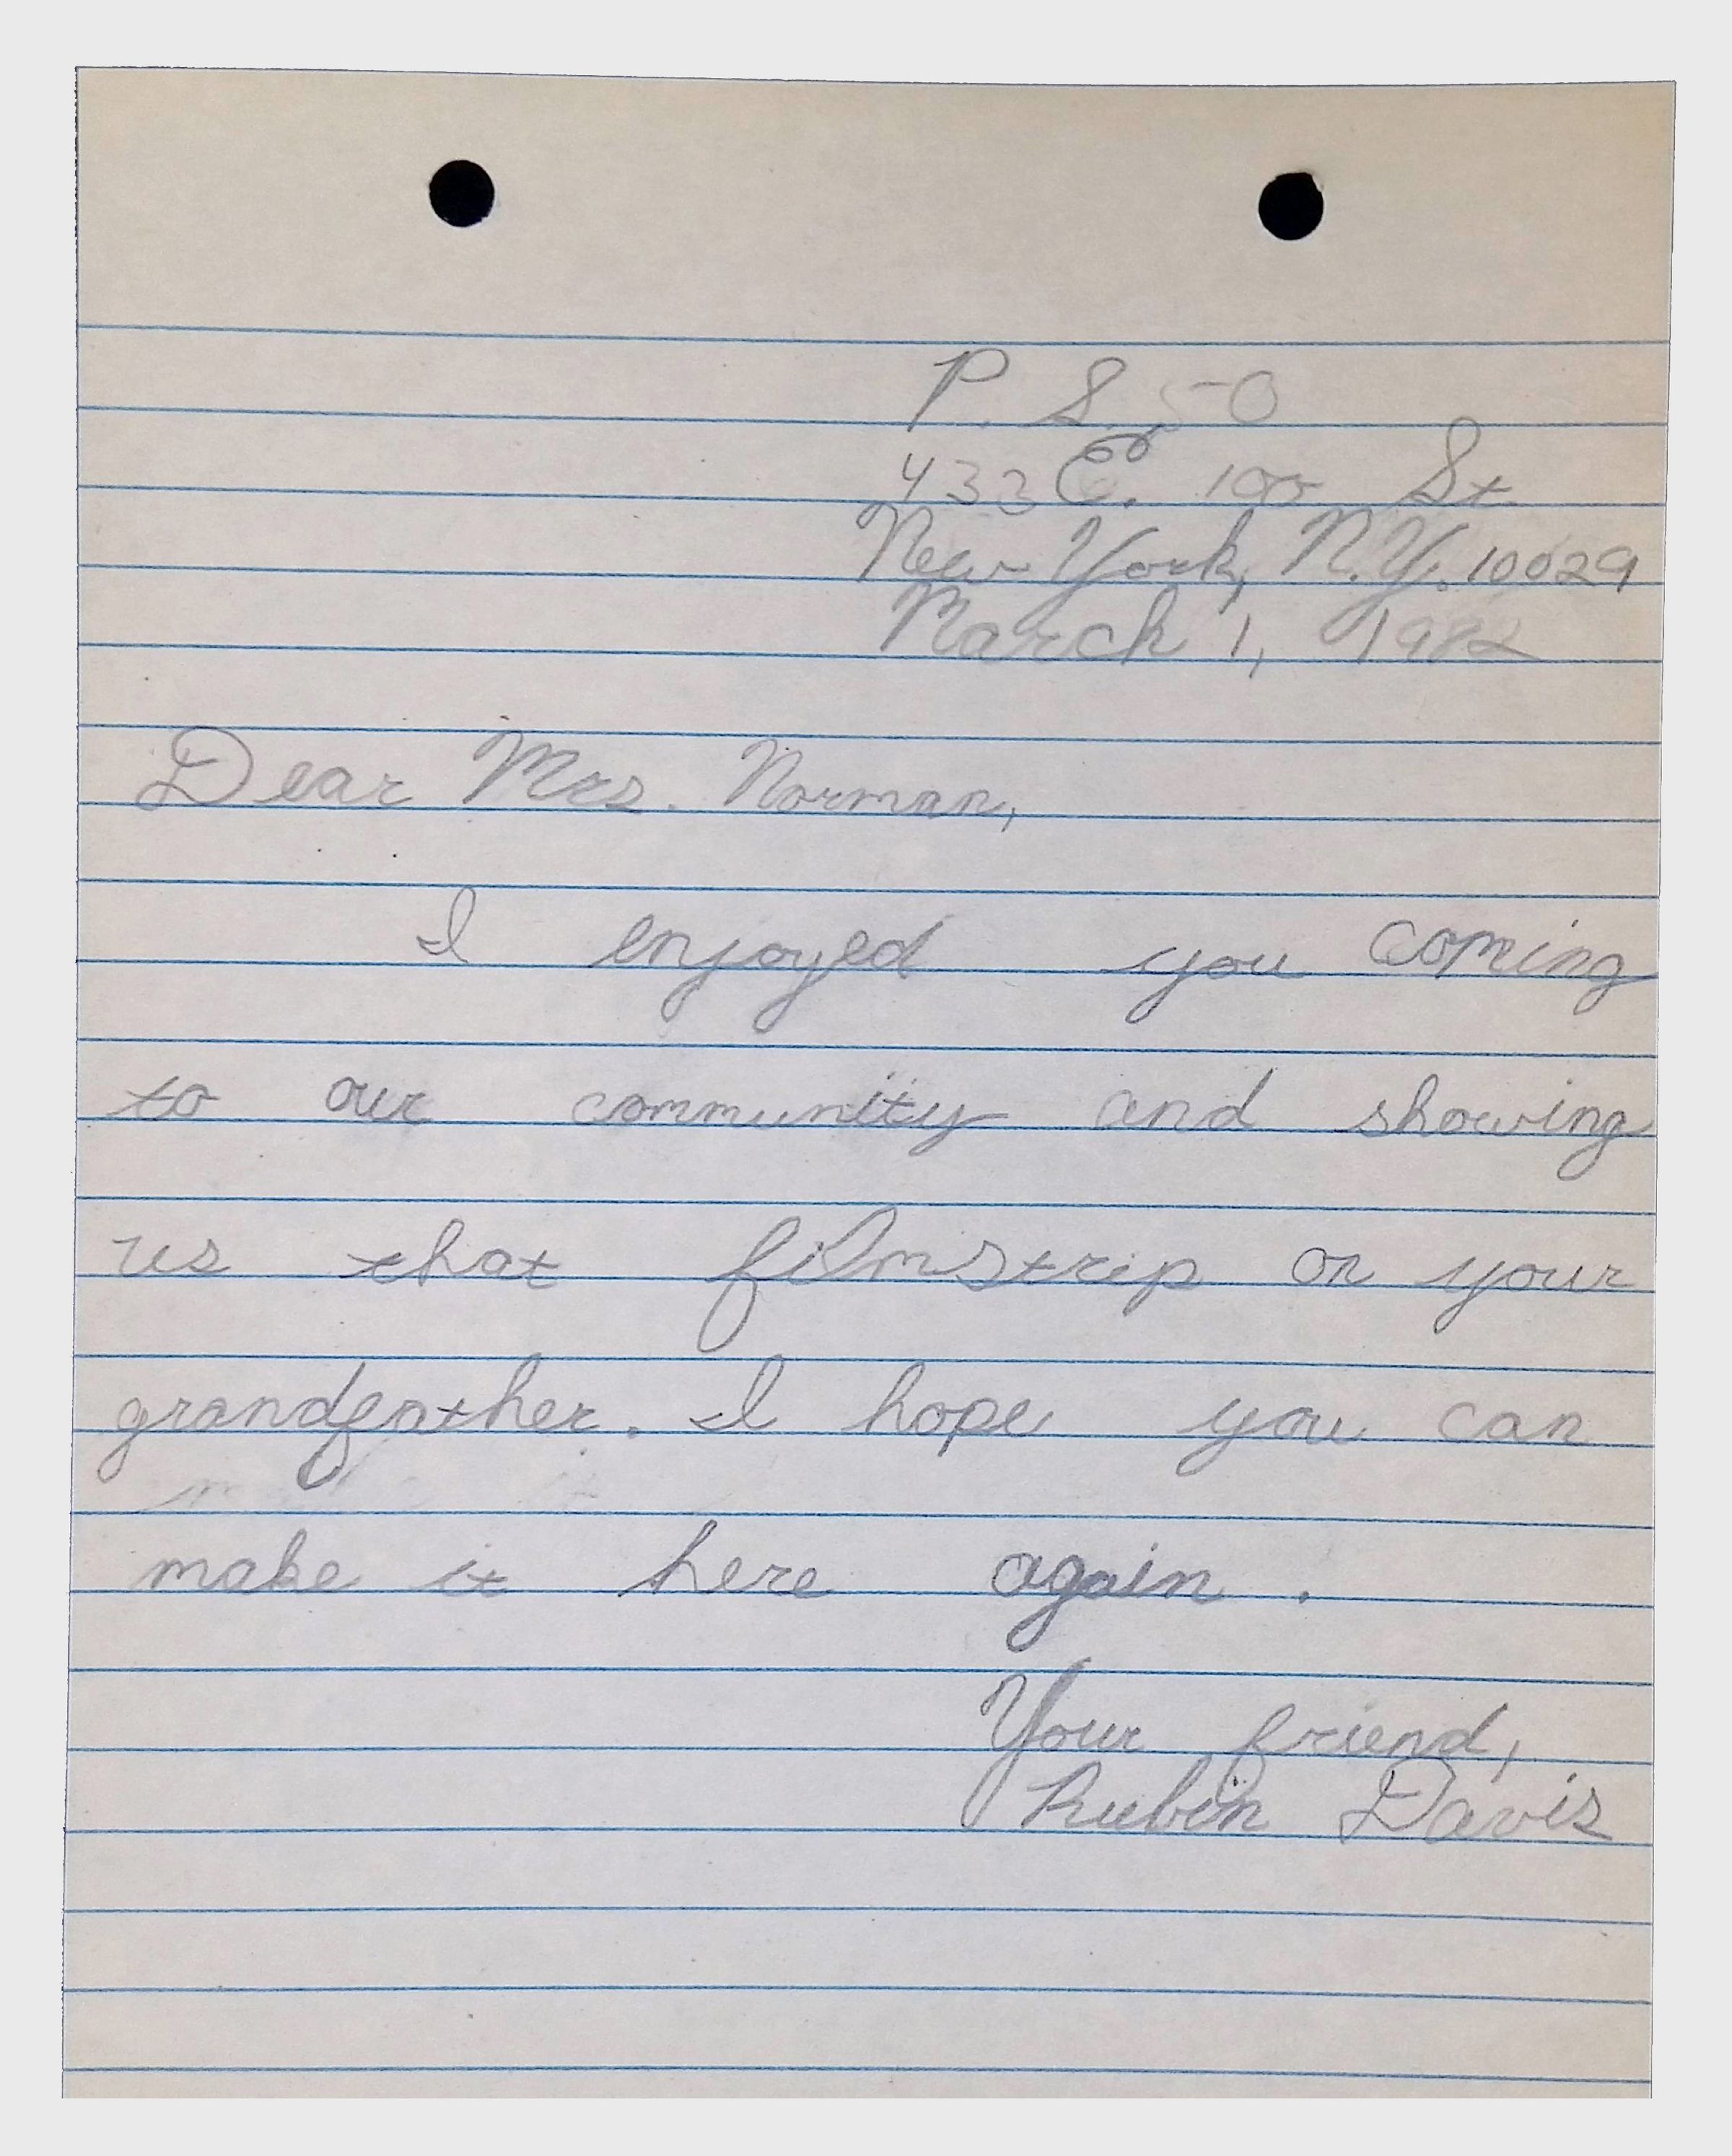 P. S. 50
433 E. 100 St.
New York, N.Y. 10029
March 1, 1982
Dear Mrs. Norman,
I enjoyed you coming
to our community and showing
us that filmstrip on your
grandfather. I hope you can
make it here again.
Your friend,
Rubin Davis